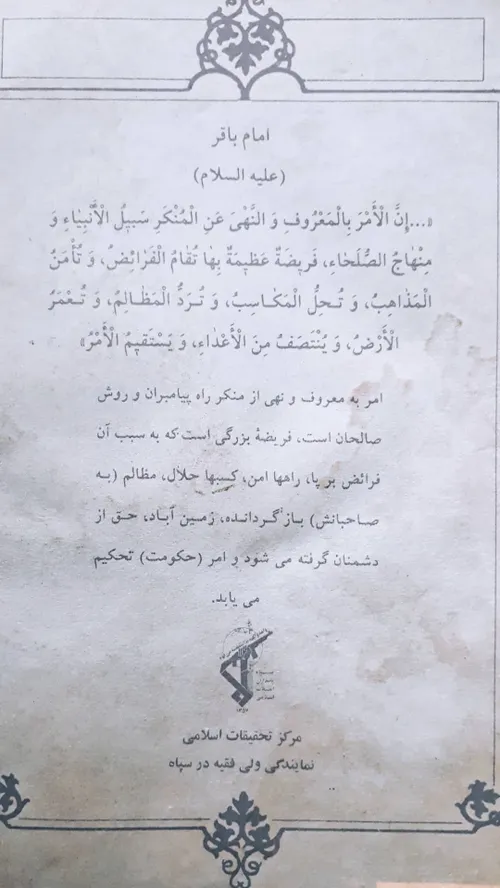 امام باقر
(علیه السلام)
«...إِنَّ الْأَمْرَ بِالْمَعْرُوفِ وَ النَّهْیَ عَنِ الْمُنْکَرِ سَبِیلُ الْأَنْبِیَاءِ وَ
مِنْهَاجُ الصُّلَحَاءِ، فَرِیضَةٌ عَظِیمَةٌ بِهَا تُقَامُ الْفَرَائِضُ، وَ تَأْمَنُ
الْمَذَاهِبُ، وَ تُحِلُّ الْمَکَاسِبُ، وَ تُرَدُّ الْمَظَالِمُ، وَ تُعْمَرُ
الْأَرْضُ، وَ یُنْتَصَفُ مِنَ الْأَعْدَاءِ، وَ یَسْتَقِیمُ الْأَمْرُ»
امر به معروف و نهی از منکر راه پیامبران و روش
صالحان است، فریضهٔ بزرگی است که به سبب آن
فرائض بر پا، راهها امن، کسبها حلال، مظالم (به
صاحبانش) بازگردانده، زمین آباد، حق از
دشمنان گرفته می شود و امر (حکومت) تحکیم
می یابد.
مرکز تحقیقات اسلامی
نمایندگی ولی فقیه در سپاه